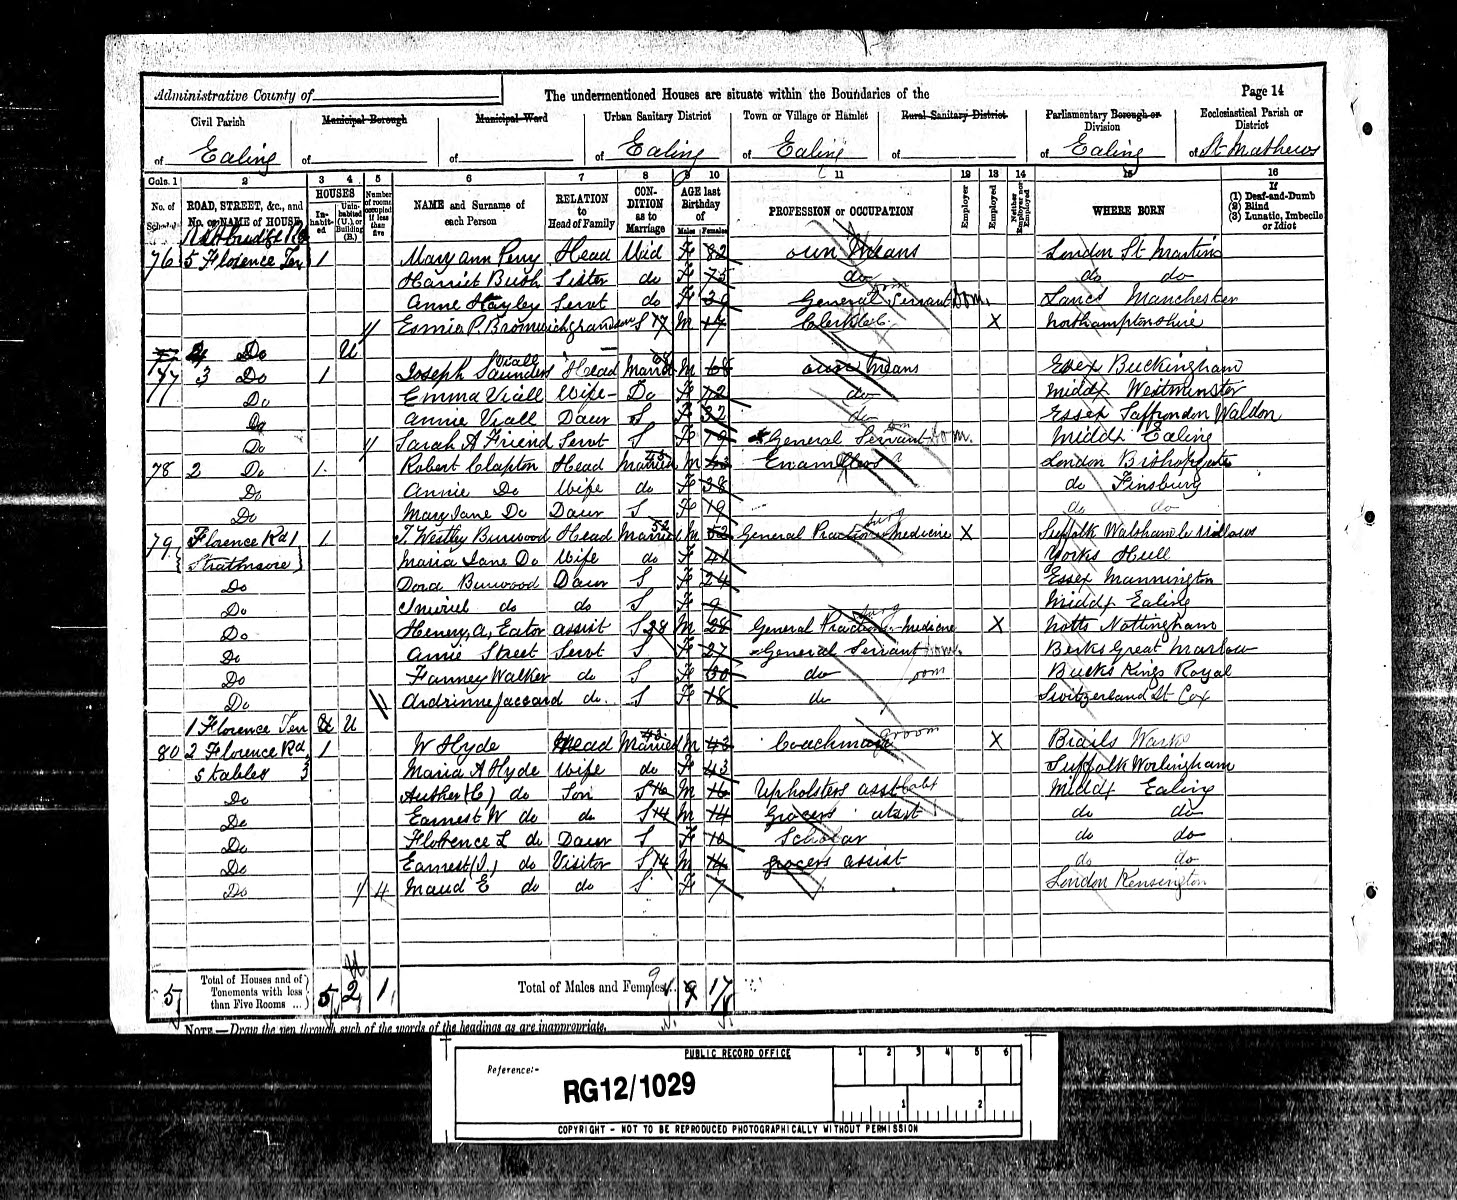 Administrative County of
The undermentioned Houses are situate within the Boundaries of the
Page 14
Civil Parish
Municipal Borough
Municipal Ward
Urban Sanitary District
Town or Village or Hamlet
Rural Sanitary District
Parliamentary Borough or Division
Ecclesiastical Parish or District
of Ealing of of of Ealing of Ealing of of Ealing of St Mathews
Cols. 1 2 3 4 5 6 7 8 9 10 11 12 13 14 15 16
No. of Schedule
ROAD, STREET, &c., and No. or NAME of HOUSE
HOUSES
Inhabited
Uninhabited (U.), or Building (B.)
Number of rooms occupied if less than five
NAME and Surname of each Person
RELATION to Head of Family
CONDITION as to Marriage
AGE last Birthday of
Males Females
PROFESSION or OCCUPATION
Employer
Employed
Neither Employer nor Employed
WHERE BORN
If
(1) Deaf-and-Dumb
(2) Blind
(3) Lunatic, Imbecile or Idiot
76 5 Florence Ter 1 Mary Ann Perry Head Wid F 82 own Means London St Martins
Harriet Bush Sister do F 75 do do do
Anne Hayley Servt do F General Servant Dom. Lancs Manchester
P. Bromwich grandson S 17 M 17 Clerk X Northamptonshire
4 Do U
77 3 Do 1 Joseph Saunders Viall Head Married M 68 own Means Essex Buckingham
Do Emma Viall Wife Do F 72 do Middx Westminster
Do Annie Viall Daur S F 32 do Essex Saffrondon Waldon
Do Sarah A Friend Servt S F 19 General Servant Dom. Middx Ealing
78 2 Do 1 Robert Clapton Head Married M 43 London Bishopgate
Do Annie Do Wife do F 38 do Finsbury
Do Mary Jane Do Daur S F 19 do do
79 Florence Rd 1 1 T. Westley Burwood Head Married 52 M 52 General Practioner Medicine X Suffolk Walsham le Willows
Strathmore Maria Jane Do Wife do F 41 Yorks Hull
Do Dora Burwood Daur S F 24 Essex Mannington
Do Muriel do do S F 9 Middx Ealing
Do Henery A. Eator assist S 28 M 28 General Practior Medicine X Notts Nottingham
Do Annie Street Servt S F 27 General Servant Dom. Berks Great Marlow
Do Fanney Walker do S F 30 do Dom Bucks Kings Royal
Do Jaccard do. S F 18 do Switzerland St Cox
1 Florence Ter U
80 2 Florence Rd 1 W Hyde Head Married 43 M 43 Coachman Groom X Brails Wark
Stables 3 Maria A Hyde Wife do F 43 Suffolk Worlingham
Do Auther (E) do Son S 16 M 16 Upholsters asst Middx Ealing
Do Earnest W do do S 14 M 14 Grocers do do
Do Florence L do Daur S F 10 Scholar do do
Do Earnest (J.) do Visitor S 14 M 14 grocers assist do do
Do 4 Maud E do do S F 7 London Kensington
5 Total of Houses and of Tenements with less than Five Rooms ... 5 2 1 Total of Males and Females.. 9 17
NOTE.—Draw the pen through such of the words of the headings as are inappropriate.
PUBLIC RECORD OFFICE
1 2 3 4 5 6
Reference:-
RG12/1029
1 2
COPYRIGHT - NOT TO BE REPRODUCED PHOTOGRAPHICALLY WITHOUT PERMISSION